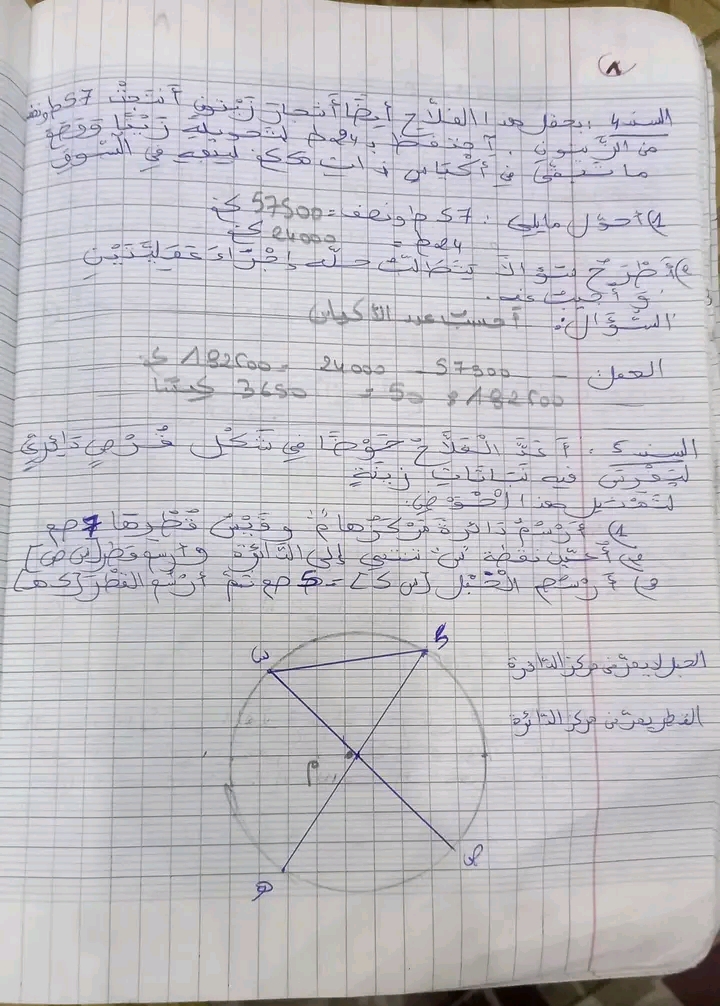 السند 4: بحقل هذا الفلاّح أيضًا أشجار زيتون أنتجتْ 57 ط ونصف
من الزّيتون. احتفظ بـ 24ط لتحويله زيتًا ووضع
ما تبقّى في أكياس ذات 50كغ لبيعه في السّوق
1) أحوّل ما يلي: 57 ط ونصف = 57500 كغ
24ط = 24000 كغ
2) أطْرحُ سؤالاً يتطلّبُ حلّه إجْراءَ عَمَليّتَيْنِ
وَ أُجيبُ عنه.
السّؤال: أحسب عدد الأكياس
العمل - 57500 24000 = 182500 كغ
182500 : 50 = 3650 كيسًا
السند 5: أعَدَّ الْفَلاَّحُ حَوْضًا في شَكْل قُرْصٍ دَائِريٍّ
ليَغْرِسَ فيه نَبَاتَاتِ زِينَةٍ
لتَمْثيل هذا الْحَوْضِ:
1) أرْسُمُ دَائرة مَرْكَزُهَا م وقَيْسُ قُطْرِهَا 7 صم
أعيّن نقطة س تنتمي إلى الدّائرة وأرسم قطر[س ص]
أرْسُم الْحَبْل [س ك] = 5 صم ثمّ أرْسُم القُطْرَ [ك ه]
الحبل لا يمرّ من مركز الدّائرة
القطر يمرّ من مركز الدّائرة
م